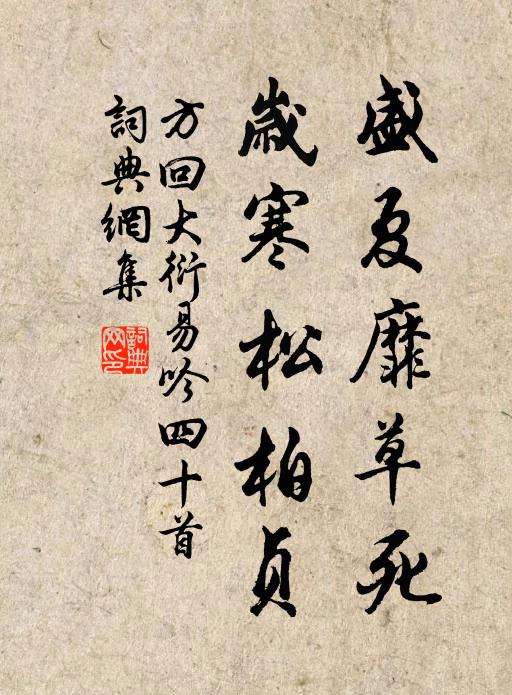 盛夏靡草死
歲寒松柏貞
方回大衍易吟四十首
詞典網集
詞典網印